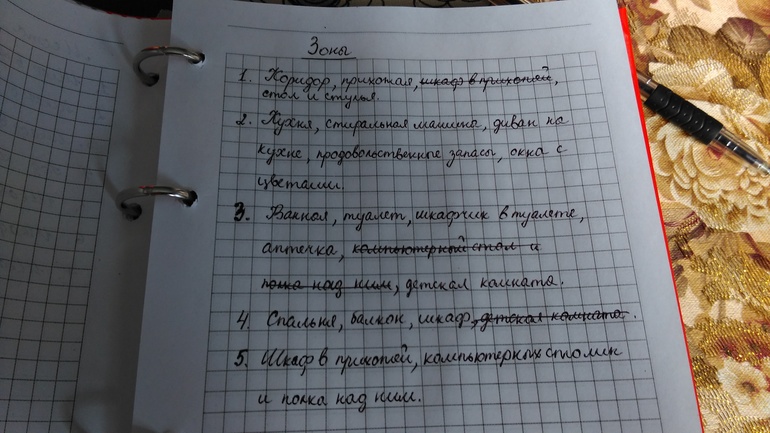 Зоны
1. Коридор, прихожая, шкаф в прихожей,
стол и стулья.
2. Кухня, стиральная машина, диван на
кухне, продовольственные запасы, окна с
цветами.
3. Ванная, туалет, шкафчик в туалете,
аптечка, компьютерный стол и
полка над ним, детская комната.
4. Спальня, балкон, шкаф, детская комната.
5. Шкаф в прихожей, компьютерных столик
и полка над ним.